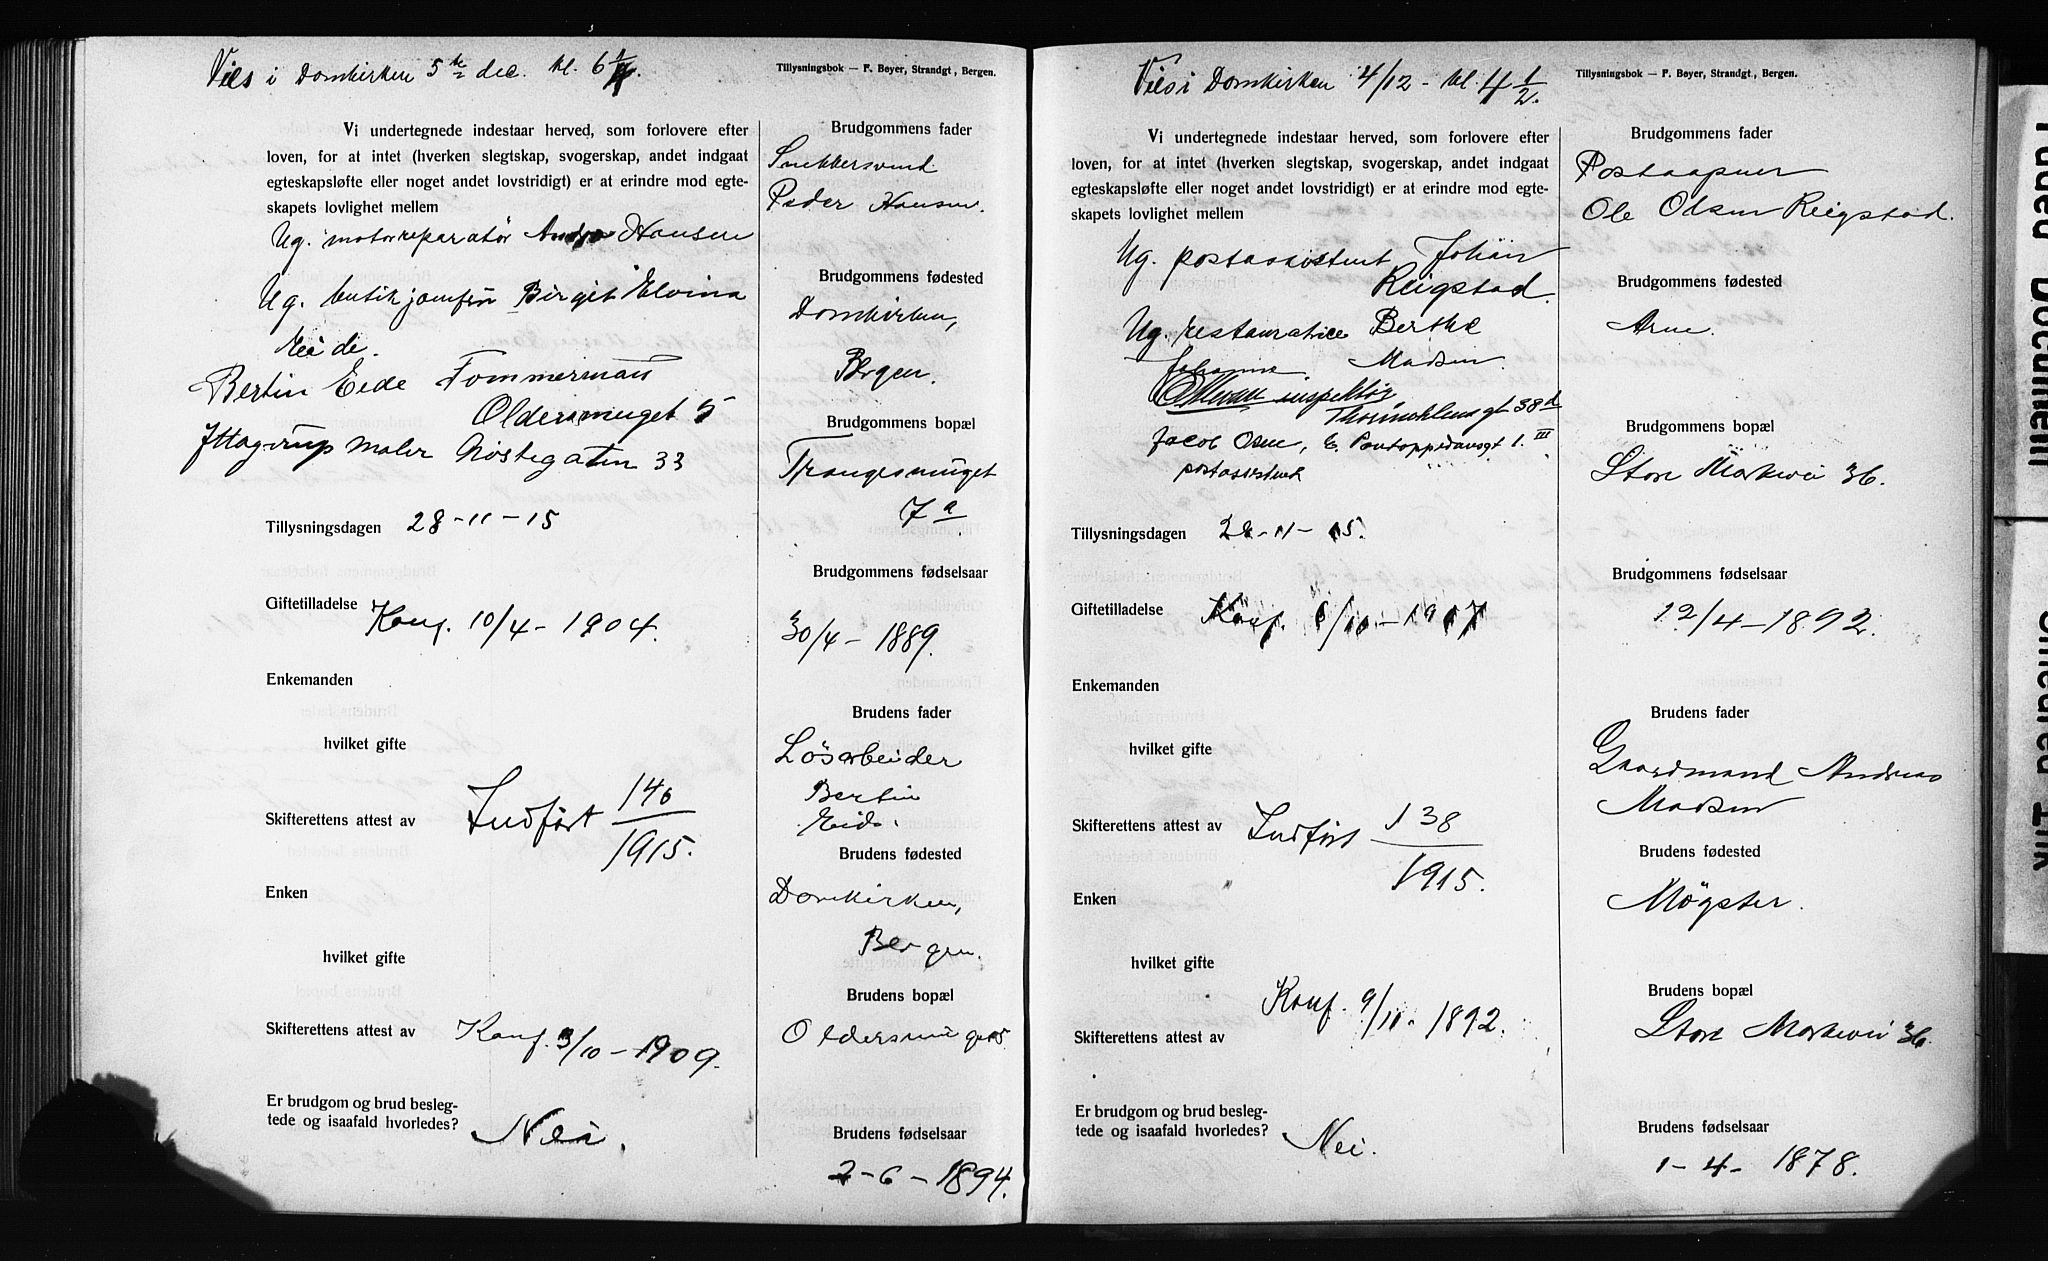 Vies i Domkirken 5te dec. kl. 6
Tillysningsbok — F. Bøyer, Strandgt, Bergen.
Vi undertegnede indestaar herved, som forlovere efter
loven, for at intet (hverken slegtskap, svogerskap, andet indgaat
egteskapsløfte eller noget andet lovstridigt) er at erindre mod egte-
skapets lovlighet mellem
Ug. motorreparatør Hansen
Ug. butikjomfru Birgit Elvina
Eide.
Bertin Eide Tømmermand
Oldersmuget 5
Maler Nøstegaten 33
Tillysningsdagen 28-11-15
Giftetilladelse Konf. 10/4-1904.
Enkemanden
hvilket gifte
Skifterettens attest av Indført 146/1915.
Enken
hvilket gifte
Skifterettens attest av Konf. 3/10-1909.
Er brudgom og brud besleg-
tede og isaafald hvorledes? Nei.
Brudgommens fader
Snekkersvend
Peder Hansen.
Brudgommens fødested
Domkirken,
Bergen.
Brudgommens bopæl
Trangesmuget
7a
Brudgommens fødselsaar
30/4-1889.
Brudens fader
Løsarbeider
Bertin
Eide.
Brudens fødested
Domkirken,
Bergen.
Brudens bopæl
Oldersmuget 5
Brudens fødselsaar
2-6-1894.
Vies i Domkirken 4/12 - kl. 4 1/2.
Tillysningsbok — F. Bøyer, Strandgt, Bergen.
Vi undertegnede indestaar herved, som forlovere efter
loven, for at intet (hverken slegtskap, svogerskap, andet indgaat
egteskapsløfte eller noget andet lovstridigt) er at erindre mod egte-
skapets lovlighet mellem
Ug. postassistent Johan
Reigstad.
Ug. restauratrice Berthe
Johanne Madsen.
inspektør
Thormøhlensgt 38d
Jacob Osen, E. Pontoppidansgt 1. III
postassistent
Tillysningsdagen 28-11-15.
Giftetilladelse Konf. 6/10-1907
Enkemanden
hvilket gifte
Skifterettens attest av Indført 138/1915.
Enken
hvilket gifte
Skifterettens attest av Konf. 9/11-1892.
Er brudgom og brud besleg-
tede og isaafald hvorledes? Nei.
Brudgommens fader
Postaapner
Ole Olsen Reigstad.
Brudgommens fødested
Arne.
Brudgommens bopæl
Store Markevei 36.
Brudgommens fødselsaar
12/4-1892.
Brudens fader
Gaardmand Andreas
Madsen
Brudens fødested
Møgster.
Brudens bopæl
Store Markevei 36.
Brudens fødselsaar
1-4-1878.
Faded Document
Smeared Ink